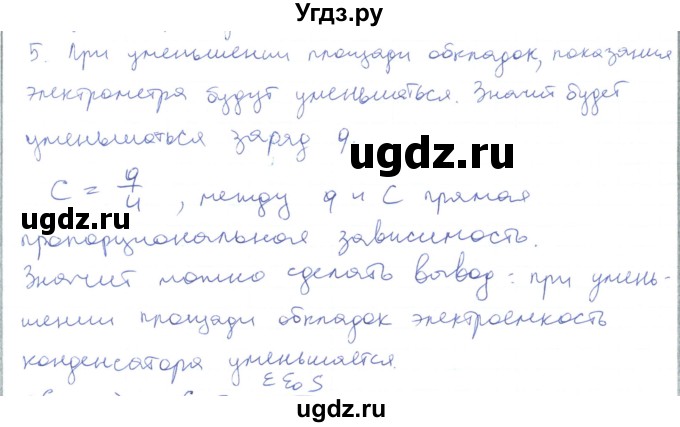 Угдз.ру
5. При уменьшении площади обкладок, показания
электрометра будут уменьшаться. Значит будет
уменьшаться заряд q
ugdz.ru
C = q/U, между q и C прямая
ugdz.ru
пропорциональная зависимость.
Значит можно сделать вывод: при умень-
шении площади обкладок электроемкость
конденсатора уменьшается.
εε₀S
ugdz.ru